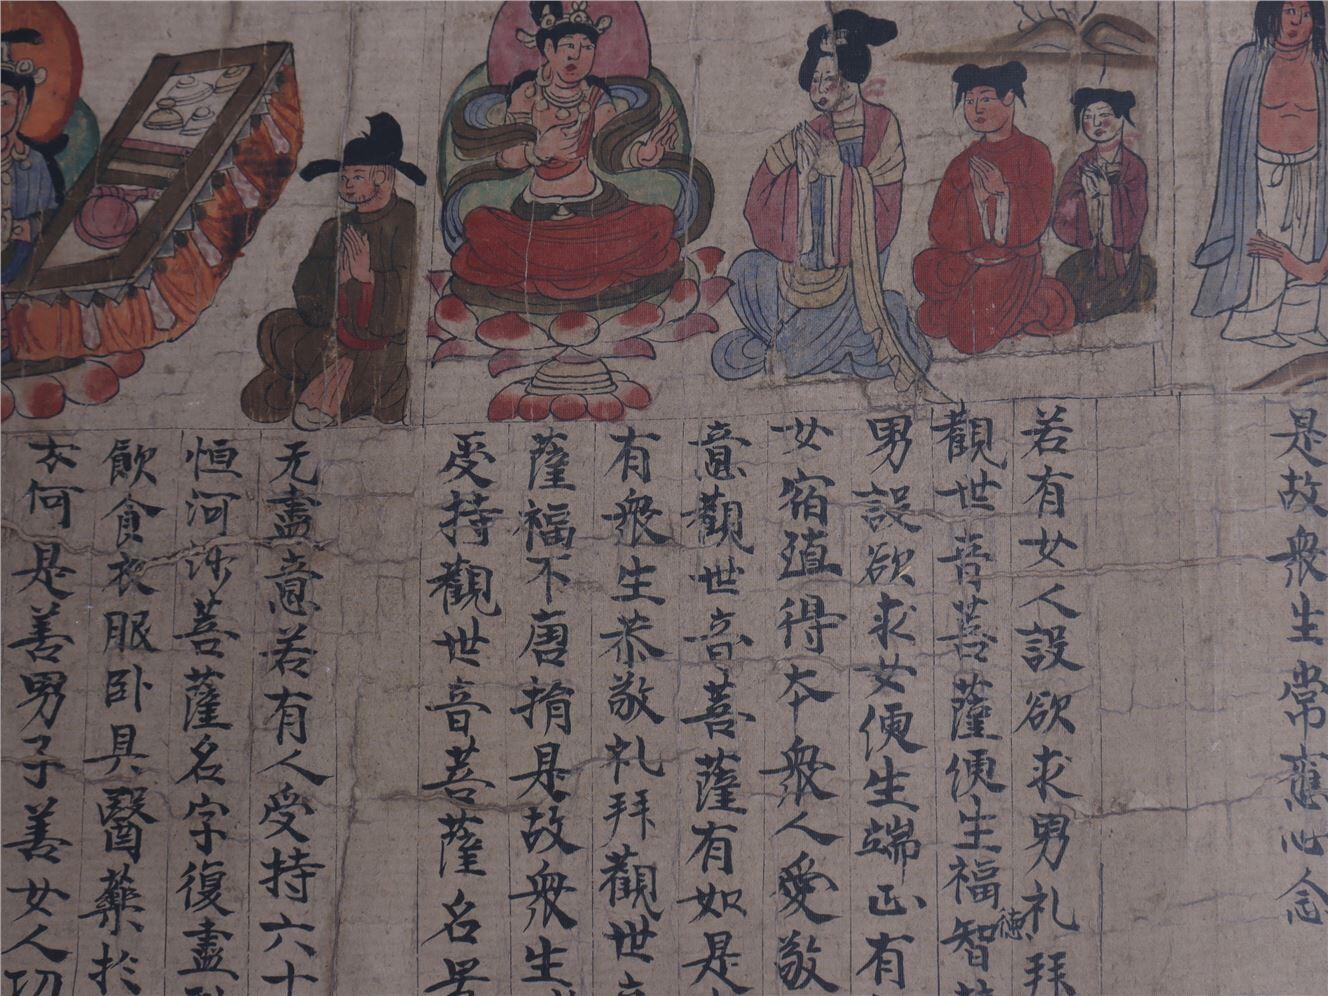 是故衆生常應心念
若有女人設欲求男礼拜
觀世音菩薩便生福德智
男設欲求女便生端正有
女宿殖得夲衆人愛敬
意觀世音菩薩有如是
有衆生恭敬礼拜觀世音
薩福不唐捐是故衆生
受持觀世音菩薩名号
无盡意若有人受持六十
恒河沙菩薩名字復盡
飲食衣服卧具醫藥於
何是善男子善女人切